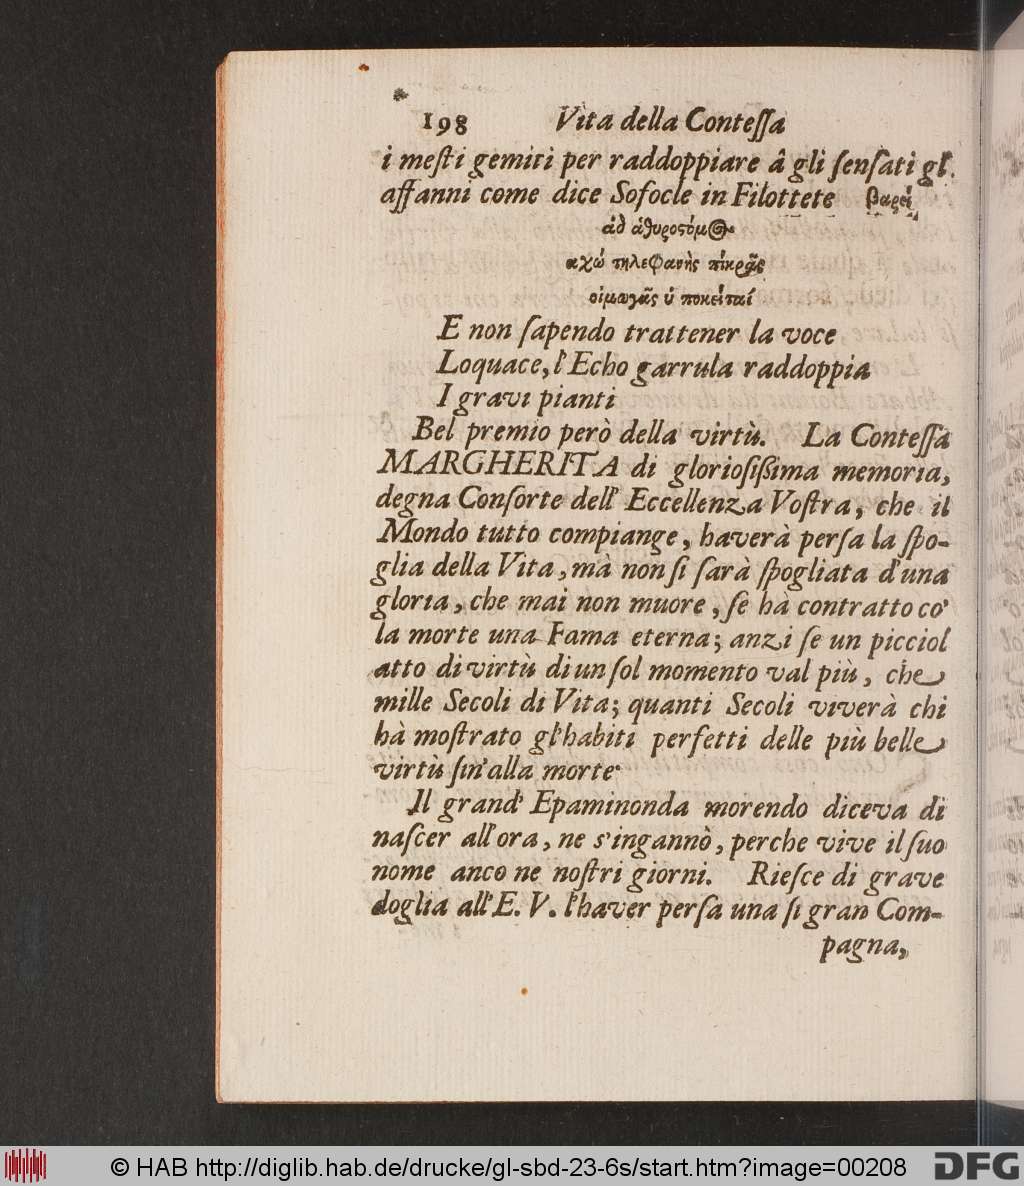 198 Vita della Conteſſa
i meſti gemiti per raddoppiare â gli ſenſati gl'
affanni come dice Sofocle in Filottete βαρεῖ
ἀδ ἀθυροςόμος
αχώ τηλεφανὴς πἰκρᾶς
οἰμωγᾶς ὑ ποκεἰταί
E non ſapendo trattener la voce
Loquace, l'Echo garrula raddoppia
I gravi pianti
Bel premio però della virtù. La Conteſſa
MARGHERITA di glorioſißima memoria,
degna Conſorte dell' Eccellenza Voſtra, che il
Mondo tutto compiange, haverà perſa la ſpo-
glia della Vita, mà non ſi ſarà ſpogliata d'una
gloria, che mai non muore, ſe hà contratto co'
la morte una Fama eterna; anzi ſe un picciol
atto di virtù di un ſol momento val più, che
mille Secoli di Vita; quanti Secoli viverà chi
hà moſtrato gl'habiti perfetti delle più belle
virtù ſin'alla morte
Il grand' Epaminonda morendo diceva di
naſcer all'ora, ne s'ingannò, perche vive il ſuo
nome anco ne noſtri giorni. Rieſce di grave
doglia all' E. V. l'haver perſa una ſi gran Com-
pagna,
© HAB http://diglib.hab.de/drucke/gl-sbd-23-6s/start.htm?image=00208 DFG